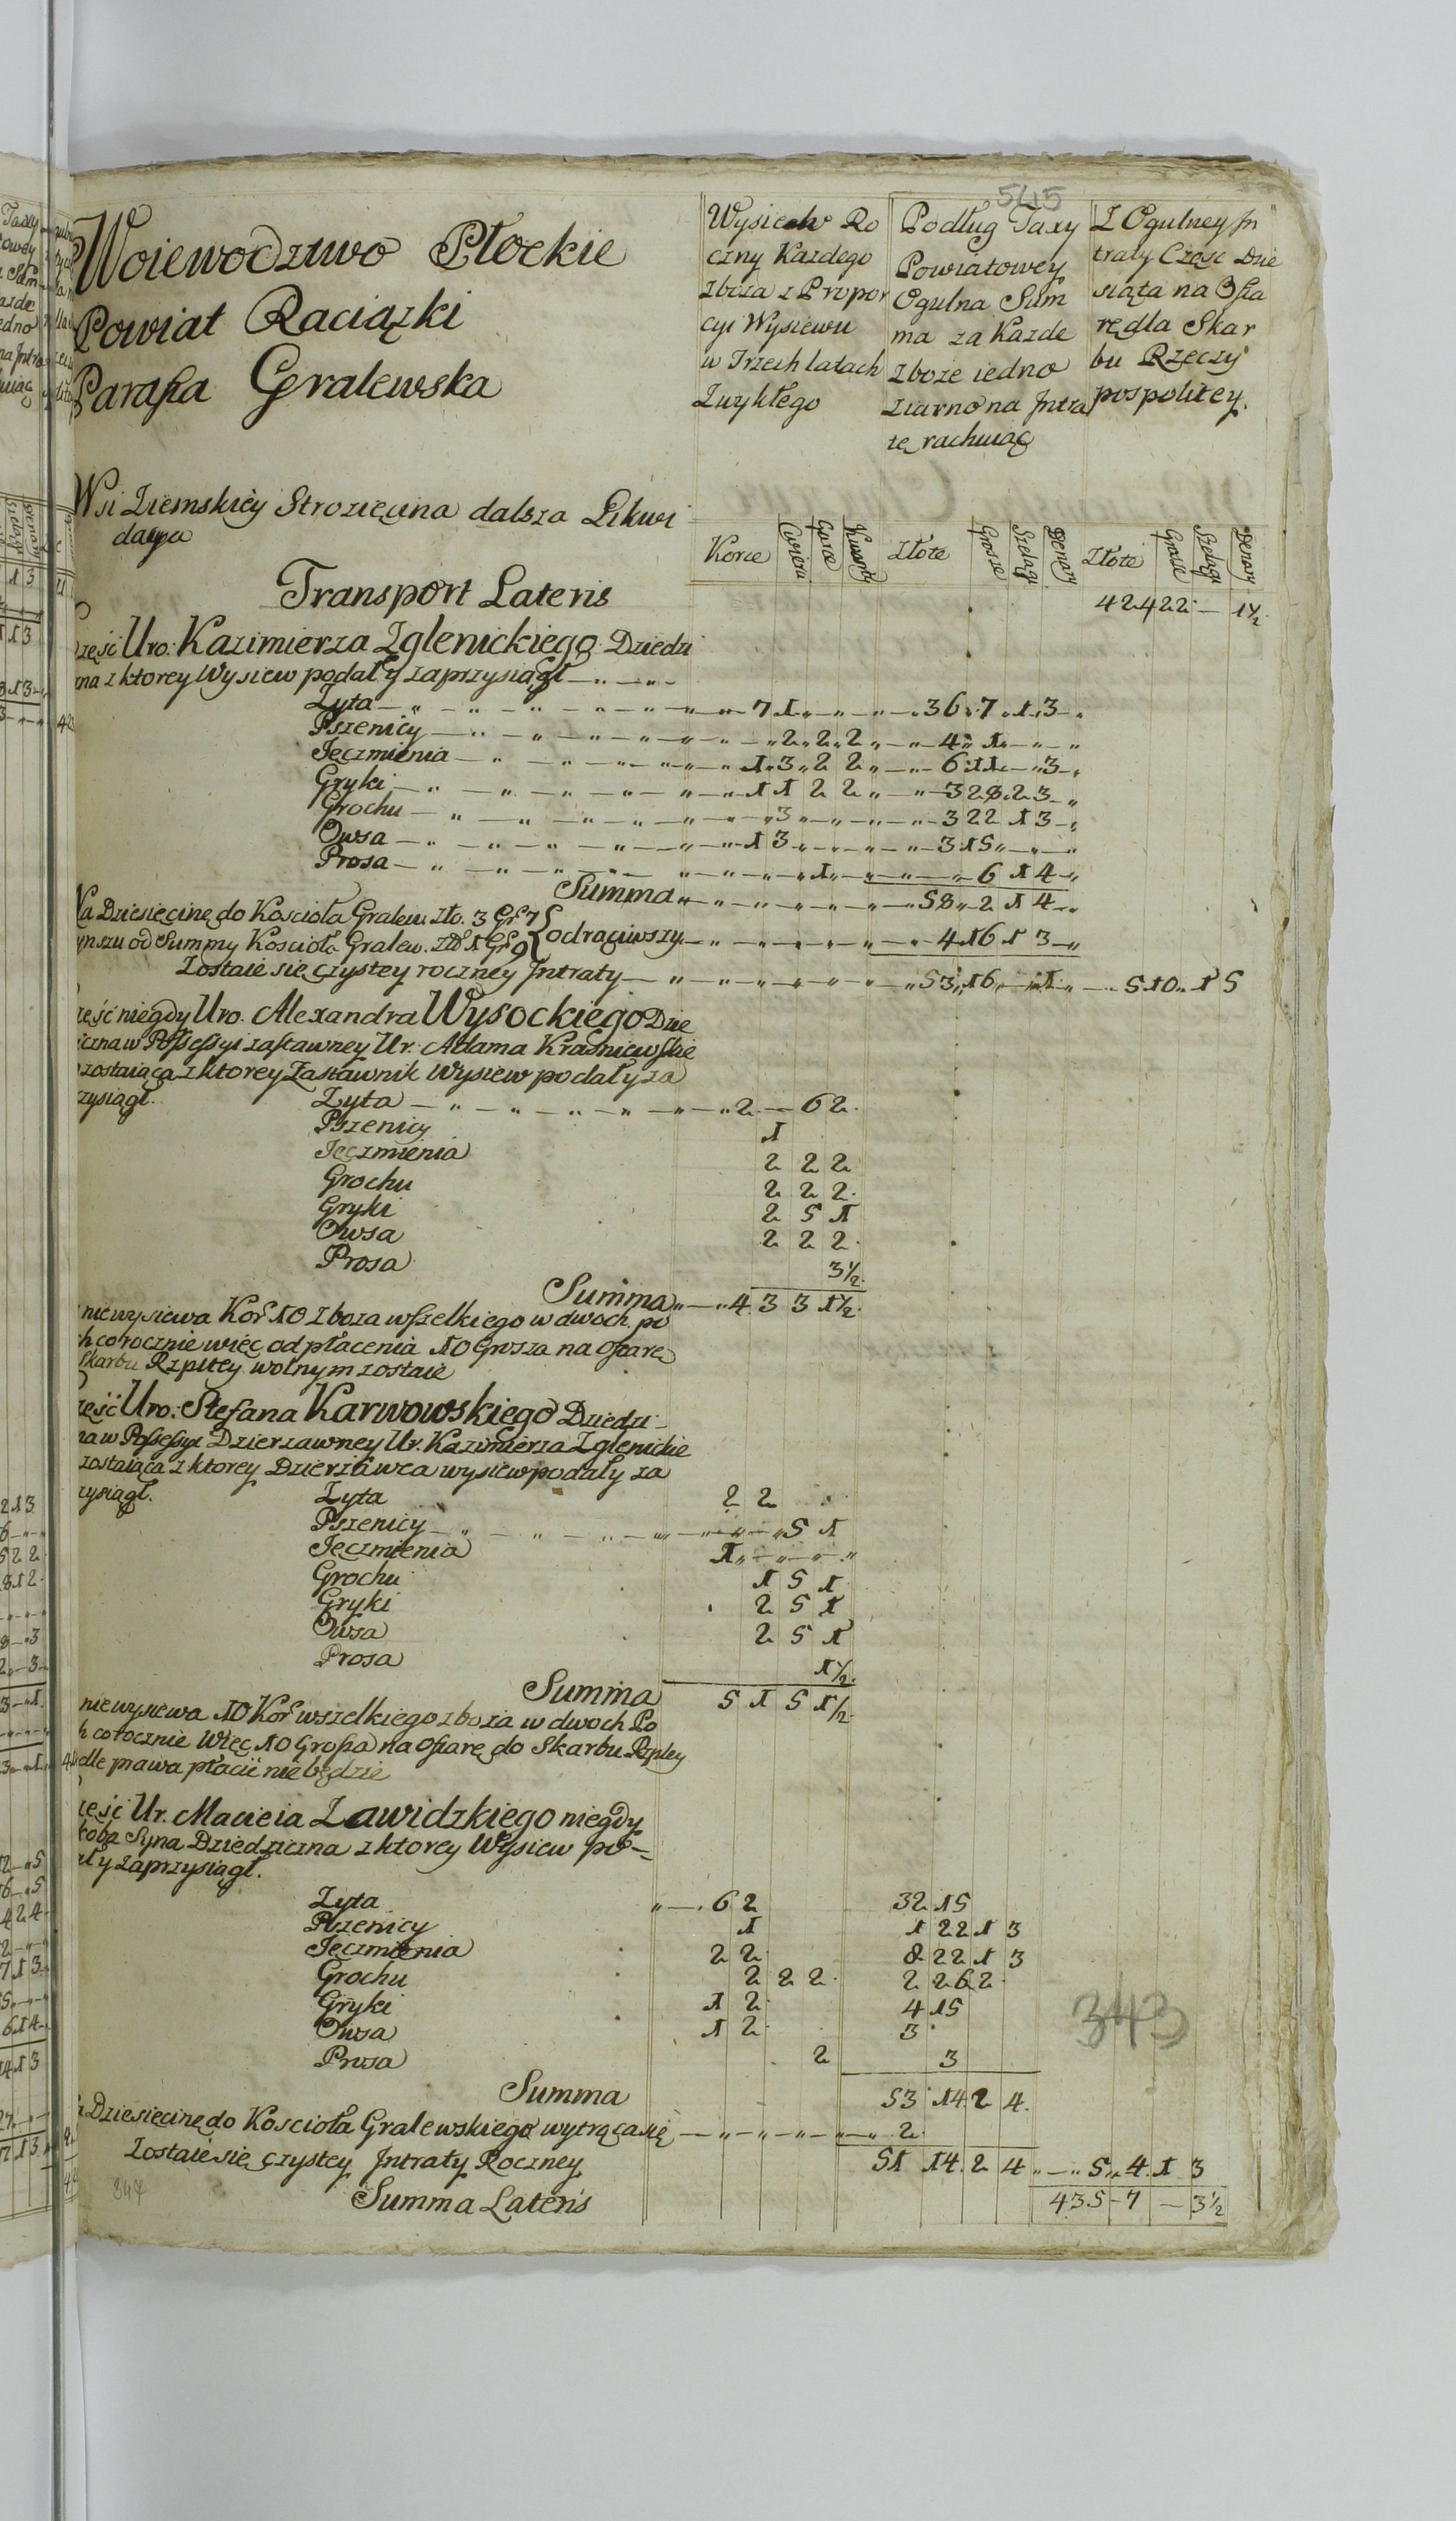 5415
Woiewodztwo Płockie
Powiat Raciązki
Parafia Gralewska
Wysiew Ro
czny Kazdego
zboza z Propor
cyi Wysiewu
w Trzech latach
Zwykłego
Podług Taxy
Powiatowey
Ogulna Sum
ma za Kazde
zboze iedno
ziarno na Intra
tę rachuiąc
Z Ogulney In
traty Częsc Dzie
siąta na Ofia
rę dla Skar
bu Rzeczy
pospolitey.
Wsi Ziemskiey Strozięcina dalsza Likwi
dacya
Korce Cwierci Garce Kwarty Złote Grosze Szelągi Denary Złote Grosze Szelągi Denary
Transport Lateris 424 22 — 1½.
zęść Uro: Kazimierza Zglenickiego Dziedzi
zna z ktorey Wysiew podał y zaprzysiągł
Zyta 7 1 36 7 1 3
Pszenicy 2 2 2 4 1
Jęczmienia 1 3 2 2 6 11 3
Gryki 1 1 2 2 3 28 2 3
Grochu 3 3 22 1 3
Owsa 1 3 3 15
Prosa 1 6 1 4
Summa 58 2 1 4
Na Dziesięcinę do Koscioła Gralew. Zło. 3 Gr 7
ynszu od Summy Koscioła Gralew. Zł 1 Gr 9 odrąciwszy 4 16 1 3
Zostaie się czystey roczney Intraty 53 16 1 5 10 1 5
zęść niegdy Uro. Alexandra Wysockiego Dzie
iczna w Possessyi zastawney Ur. Adama Krasniewskie
zostaiąca z ktorey Zastawnik Wysiew podał y za
zysiągł. Zyta 2 — 6 2.
Pszenicy 1
Jęczmienia 2 2 2
Grochu 2 2 2.
Gryki 2 5 1
Owsa 2 2 2.
Prosa 3½.
Summa 4 3 3 1½.
niewysiewa Kor 10 Zboza wszelkiego w dwoch po
h corocznie więc od płacenia 10 Grosza na ofiarę
Skarbu Rzpltey wolnym zostaie
zęść Uro: Stefana Karwowskiego Dziedzi-
na w Possessyi Dzierzawney Ur. Kazimierza Zglenickie
zostaiąca z ktorey Dzierzawca wysiew podał y za
zysiągł. Zyta 2 2
Pszenicy 5 1
Jęczmienia 1
Grochu 1 5 1
Gryki 2 5 1
Owsa 2 5 1
Prosa 1½.
Summa 5 1 5 1½.
niewysiewa 10 Kor wszelkiego zboza w dwoch Po
h corocznie Więc 10 Grosza na ofiarę do Skarbu Rzpley
edle prawa płacić nie będzie
zęść Ur. Macieia Zawidzkiego niegdy
koba Syna Dziedziczna z ktorey Wysiew po-
ał y zaprzysiągł.
Zyta 6 2 32 15
Pszenicy 1 1 22 1 3
Jęczmienia 2 2 8 22 1 3
Grochu 2 2 2. 2 26 2
Gryki 1 2 4 15
Owsa 1 2 3
Prosa 2 3
Summa 53 14 2 4.
a Dziesięcinę do Koscioła Gralewskiego wytrąca się 2.
Zostaie się czystey Intraty Roczney 51 14. 2 4 5 4. 1 3
Summa Lateris 435 - 7 — 3½
343